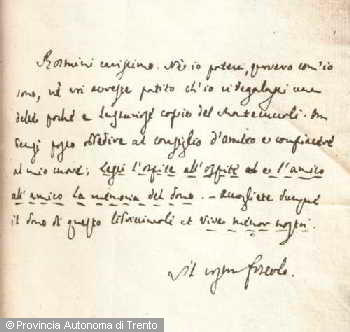 Rosmini carissimo. Nè io potea, povero com'io
sono, nè voi avreste patito ch'io vi regalassi una
delle poche e copie del Montecuccoli. Ma
posso obbedire al consiglio d'amico e compiacere
al mio cuore: Legga l'ospite all'ospite ed l'amico
all'amico la memoria del dono. — Accogliete dunque
il dono di questo libricciuolo et vive memor nostri.
Il vostro Foscolo.
© Provincia Autonoma di Trento